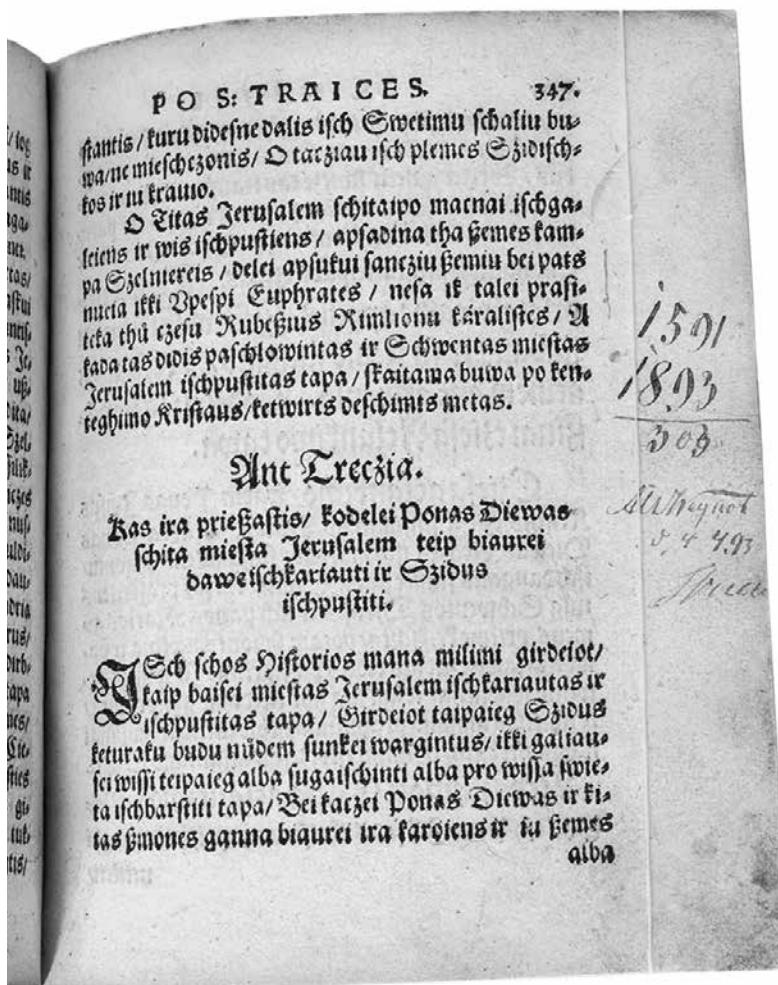 POS: TRAICES. 347.
stantis / kuru didesne dalis isch Swetimu schaliu bu-
wa / ne mieschczonis / O tacziau isch plemes Szidisch-
kos ir iu krauio.
O Titas Jerusalem schitaipo macnai ischga-
leiens ir wis ischpustiens / apsadina tha ßemes kam-
pa Szelniereis / delei apsukui sancziu ßemiu bei pats
nueia ikki Vpespi Euphrates / nesa ik talei prasi-
teka thů czesu Rubeßius Rimlionu káralistes / A
kada tas didis paschlowintas ir Schwentas miestas
Jerusalem ischpustitas tapa / skaitama buwa po ken-
teghimo Kristaus / ketwirts deschimts metas.
Ant Treczia.
Kas ira prießastis / kodelei Ponas Diewas
schita miesta Jerusalem teip biaurei
dawe ischkariauti ir Szidus
ischpustiti.
ISch schos Historios mana milimi girdeiot /
kaip baisei miestas Jerusalem ischkariautas ir
ischpustitas tapa / Girdeiot taipaieg Szidus
keturaku budu nůdem sunkei wargintus / ikki galiau-
sei wissi teipaieg alba sugaischinti alba pro wissa swie-
ta ischbarstiti tapa / Bei kaczei Ponas Diewas ir ki-
tas ßmones ganna biaurei ira karoiens ir iu ßemes
alba
1591
1893
303